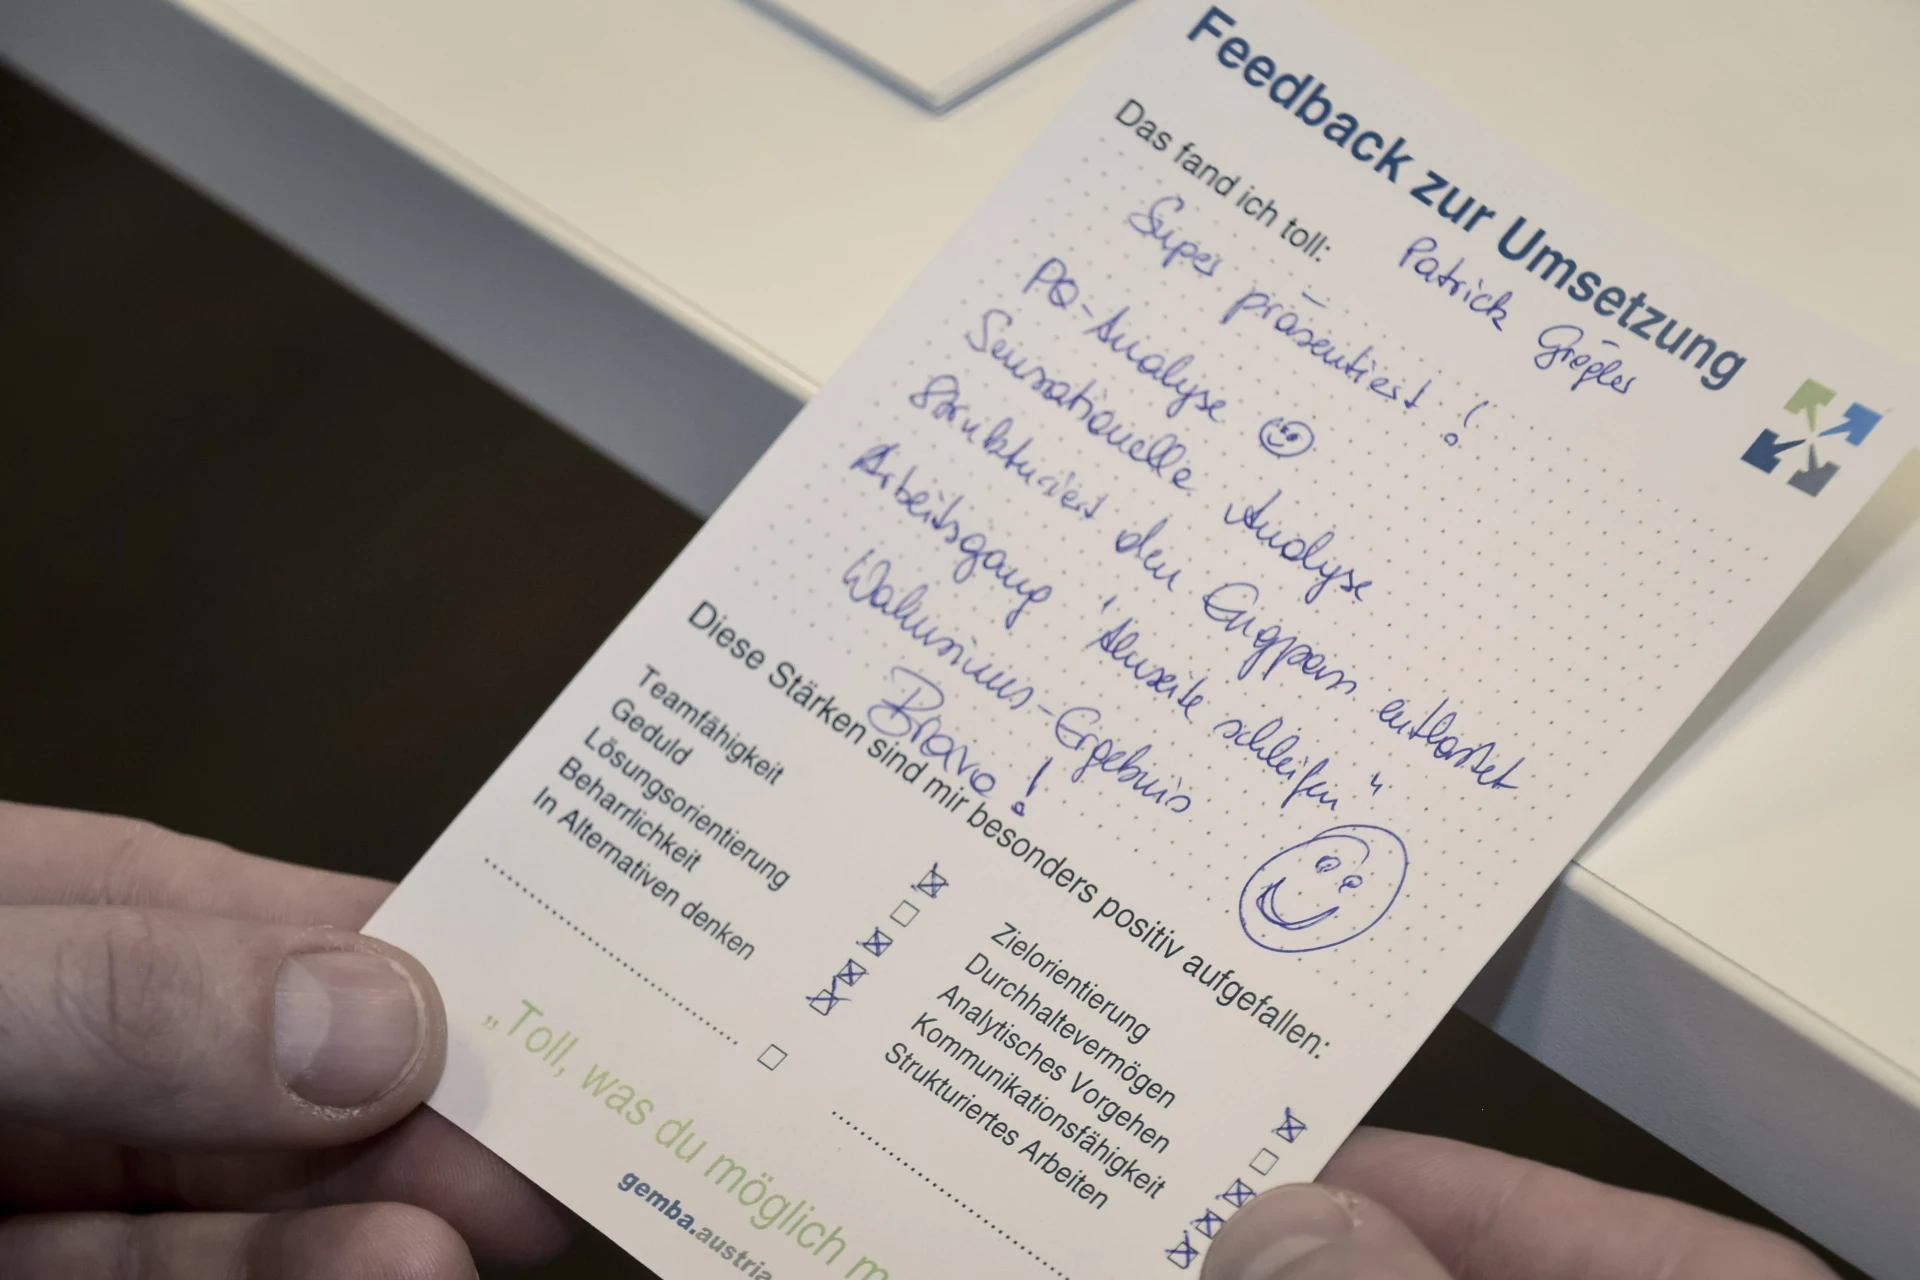 Feedback zur Umsetzung
Das fand ich toll: Patrick
Super präsentiert!
PQ-Analyse
Sensationelle Analyse
Strukturiert den Engpass entlastet
Arbeitsgang "Ahxeite schleifen"
Wahnsinns-Ergebnis
Bravo!
Diese Stärken sind mir besonders positiv aufgefallen:
Teamfähigkeit
Geduld
Lösungsorientierung
Beharrlichkeit
In Alternativen denken
Zielorientierung
Durchhaltevermögen
Analytisches Vorgehen
Kommunikationsfähigkeit
Strukturiertes Arbeiten
„Toll, was du möglich m
gemba.austria